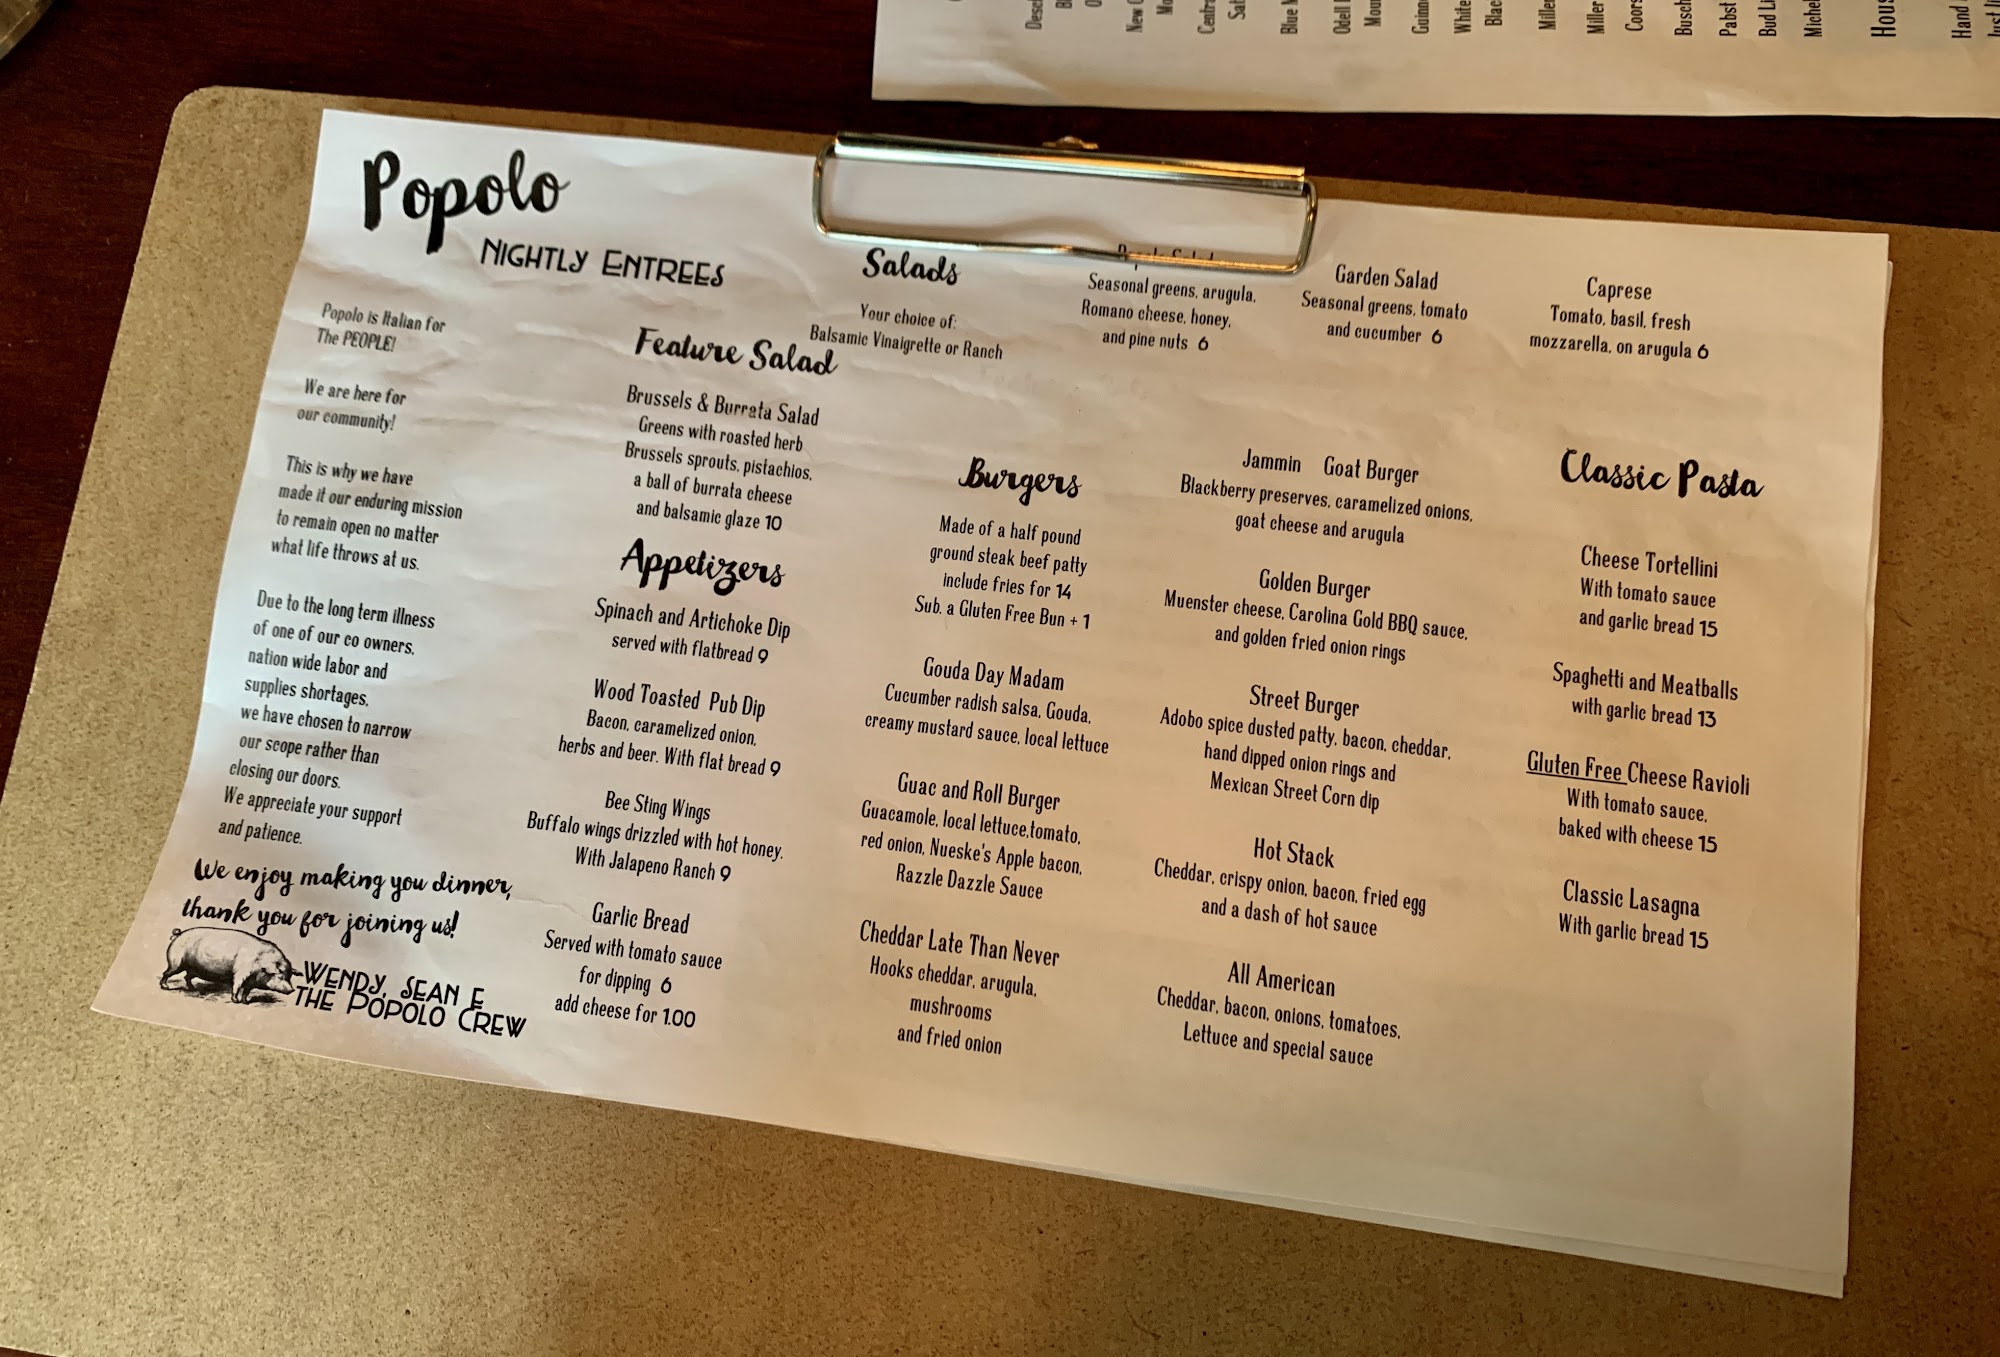 Popolo
NIGHTLY ENTREES
Popolo is Italian for
The PEOPLE!
We are here for
our community!
This is why we have
made it our enduring mission
to remain open no matter
what life throws at us.
Due to the long term illness
of one of our co owners,
nation wide labor and
supplies shortages,
we have chosen to narrow
our scope rather than
closing our doors.
We appreciate your support
and patience.
We enjoy making you dinner,
thank you for joining us!
WENDY, SEAN &
THE POPOLO CREW
Feature Salad
Brussels & Burrata Salad
Greens with roasted herb
Brussels sprouts, pistachios,
a ball of burrata cheese
and balsamic glaze 10
Appetizers
Spinach and Artichoke Dip
served with flatbread 9
Wood Toasted Pub Dip
Bacon, caramelized onion,
herbs and beer. With flat bread 9
Bee Sting Wings
Buffalo wings drizzled with hot honey.
With Jalapeno Ranch 9
Garlic Bread
Served with tomato sauce
for dipping 6
add cheese for 1.00
Salads
Your choice of:
Balsamic Vinaigrette or Ranch
Seasonal greens, arugula,
Romano cheese, honey,
and pine nuts 6
Garden Salad
Seasonal greens, tomato
and cucumber 6
Caprese
Tomato, basil, fresh
mozzarella, on arugula 6
Burgers
Made of a half pound
ground steak beef patty
include fries for 14
Sub. a Gluten Free Bun + 1
Gouda Day Madam
Cucumber radish salsa, Gouda,
creamy mustard sauce, local lettuce
Guac and Roll Burger
Guacamole, local lettuce,tomato,
red onion, Nueske's Apple bacon,
Razzle Dazzle Sauce
Cheddar Late Than Never
Hooks cheddar, arugula,
mushrooms
and fried onion
Jammin Goat Burger
Blackberry preserves, caramelized onions,
goat cheese and arugula
Golden Burger
Muenster cheese, Carolina Gold BBQ sauce,
and golden fried onion rings
Street Burger
Adobo spice dusted patty, bacon, cheddar,
hand dipped onion rings and
Mexican Street Corn dip
Hot Stack
Cheddar, crispy onion, bacon, fried egg
and a dash of hot sauce
All American
Cheddar, bacon, onions, tomatoes,
Lettuce and special sauce
Classic Pasta
Cheese Tortellini
With tomato sauce
and garlic bread 15
Spaghetti and Meatballs
with garlic bread 13
Gluten Free Cheese Ravioli
With tomato sauce,
baked with cheese 15
Classic Lasagna
With garlic bread 15
Blue
Odell
White
Miller
Miller
Coors
Busch
Pabst
Bud
Hand